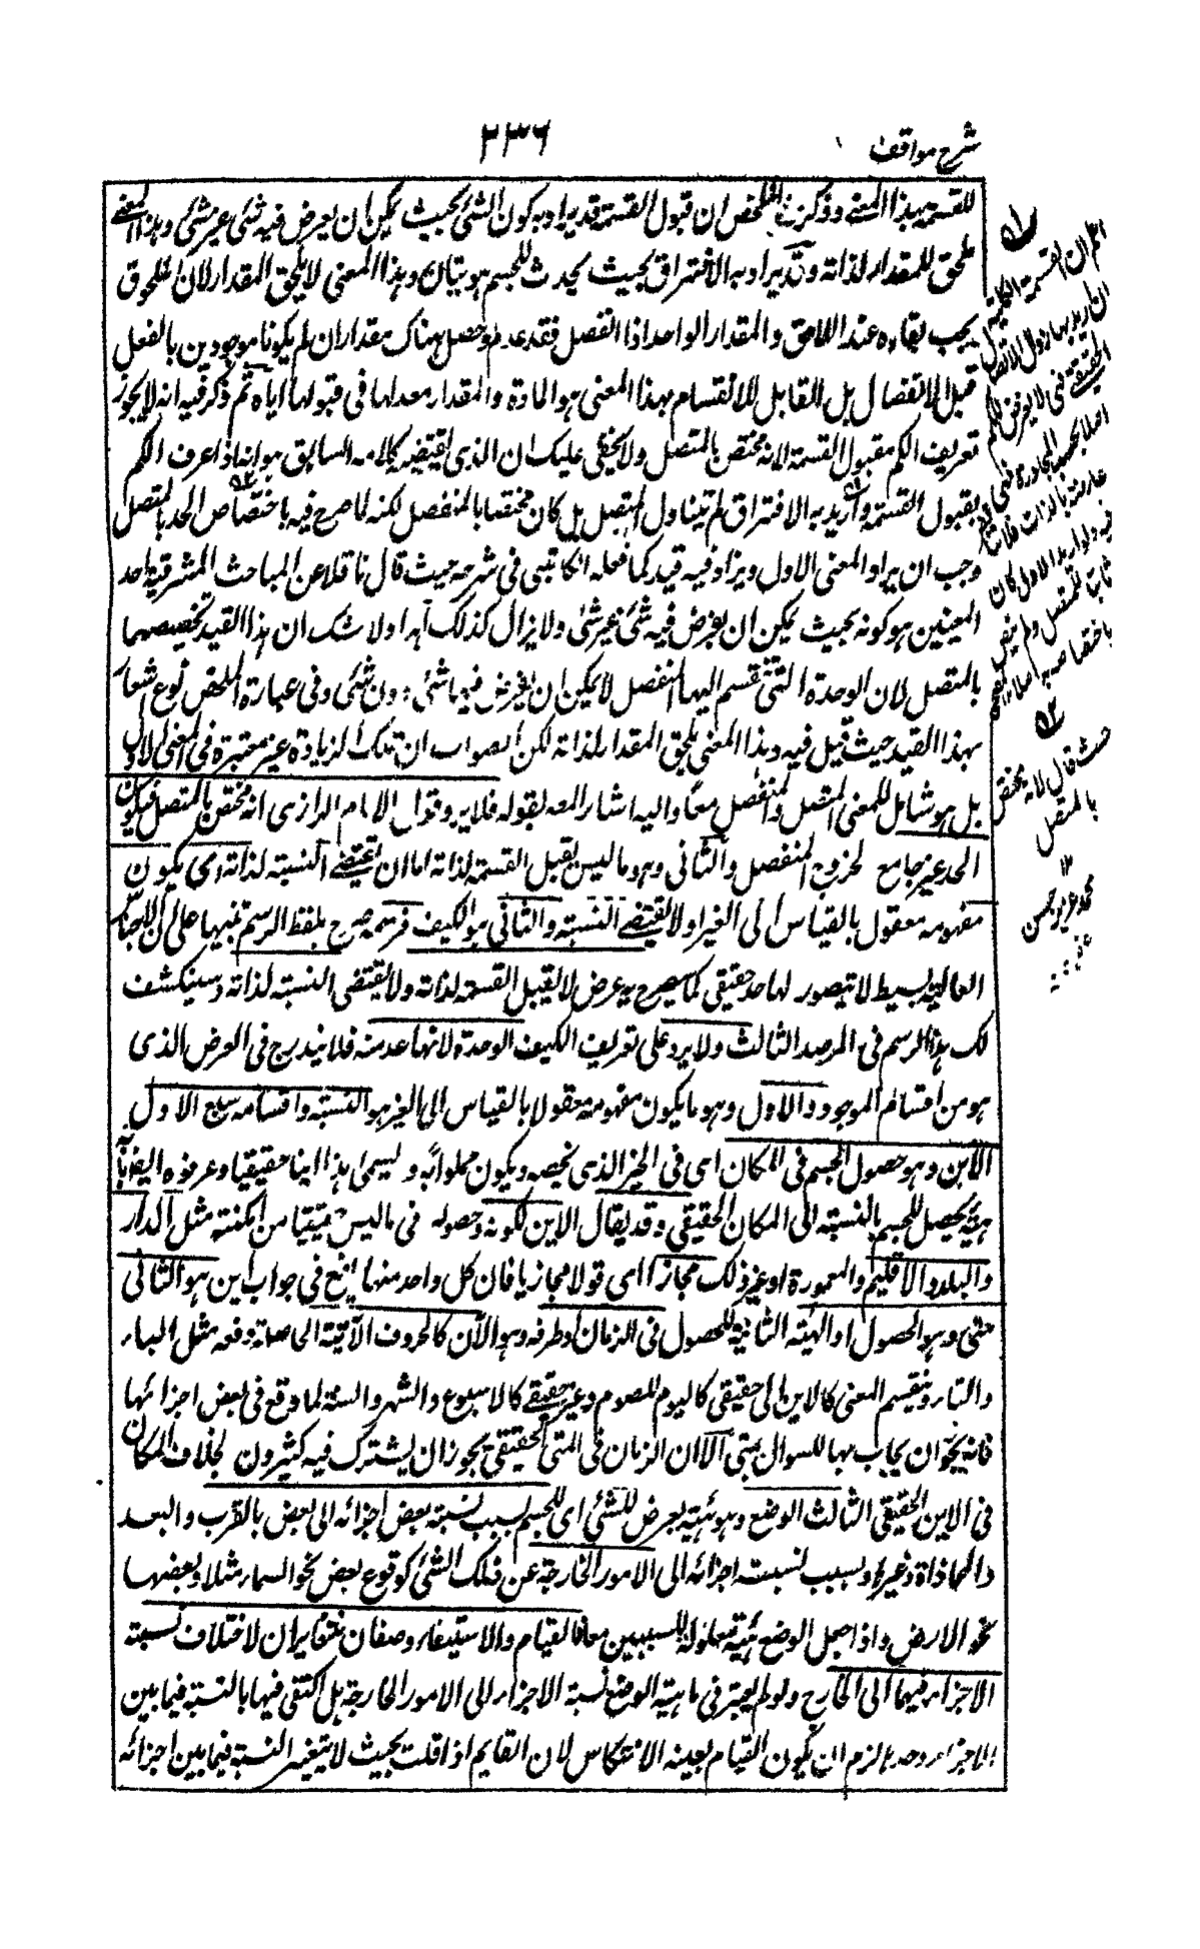 شرح مواقف
٢٣٦
للقسمة بهذا المعنى وذكر في الملخص ان قبول القسمة قد يراد به كون الشئ بحيث يمكن ان يعرض فيه شئ غير شئ وهذا المعنى
يلحق المقدار لذاته وقد يراد به الافتراق بحيث يحدث للجسم هويتان وهذا المعنى لا يلحق المقدار لان الملحوق
يجب بقاءه عند اللاحق والمقدار الواحد اذا انفصل فقد عدم وحصل هناك مقداران لم يكونا موجودين بالفعل
قبل الانفصال بل القابل للانقسام بهذا المعنى هو المادة والمقدار معد لها فى قبولها اياه ثم ذكر فيه انه لا يجوز
تعريف الكم بقبول القسمة لانه مختص بالمتصل ولا يخفى عليك ان الذى يقتضيه كلامه السابق هو انه اذا عرف الكم
بقبول القسمة واريد به الافتراق لم يتناول المتصل بل كان مختصا بالمنفصل لكنه لما صرح فيه باختصاص الحد بالمتصل
وجب ان يراد المعنى الاول ويزاد فيه قيد كما فعله الكاتبى فى شرحه حيث قال ناقلا عن المباحث المشرقية احد
المعنيين هو كونه بحيث يمكن ان يفرض فيه شئ غير شئ ولا يزال كذلك ابدا ولا شك ان هذا القيد تخصيصها
بالمتصل لان الوحدة التى تنقسم اليها المنفصل لا يمكن ان يفرض فيها شئ دون شئ وفى عبارة الملخص نوع اشعار
بهذا القيد حيث قيل فيه وهذا المعنى يلحق المقدار لذاته لكن الصواب ان تلك الزيادة غير معتبرة فى المعنى الاول
بل هو شامل للمعنى المتصل والمنفصل معا واليه اشار المصه بقوله فلا يرد قول الامام الرازى انه مختص بالمتصل فيكون
الحد غير جامع لخروج المنفصل والثانى وهو ما ليس يقبل القسمة لذاته اما ان يقتضى النسبة لذاته اى يكون
مفهومه معقولا بالقياس الى الغير او لا يقتضى النسبة والثانى هو الكيف فرسمه صرح بلفظ الرسم تنبيها على ان الاجناس
العالية بسيط لا يتصور لها حد حقيقى كما سيصرح به عرض لا يقبل القسمة لذاته ولا يقتضى النسبة لذاته وسينكشف
لك هذا الرسم فى المرصد الثالث ولا يرد على تعريف الكيف الوحدة لانها عدمية فلا يندرج فى العرض الذى
هو من اقسام الموجود والاول وهو ما يكون مفهومه معقولا بالقياس الى الغير هو النسبة واقسامه سبع الاول
الاين وهو حصول الجسم فى المكان اى فى الحيز الذى يخصه ويكون مملوا به ويسمى هذا اينا حقيقيا وعرفوه ايضا بانه
هيئة يحصل للجسم بالنسبة الى المكان الحقيقى وقد يقال الاين لكونه وحصوله فى ما ليس حقيقيا من امكنته مثل الدار
والبلد والاقليم والمعمورة او غير ذلك مجازا اى قولا مجازيا فان كل واحد منها يقع فى جواب اين هو الثانى
متى وهو الحصول او الهيئة الثانية للحصول فى الزمان او طرفه وهو الآن كالحروف الآتية الحاصلة دفعة مثل الباء
والتاء وينقسم المتى كالاين الى حقيقى كاليوم للصوم وغير حقيقى كالاسبوع والشهر والسنة لما وقع فى بعض اجزائها
فانه يجوز ان يجاب بها للسوال بمتى الا ان الزمان فى المتى الحقيقى يجوز ان يشترك فيه كثيرون بخلاف المكان
فى الاين الحقيقى الثالث الوضع وهو هيئة يعرض للشئ اى للجسم بسبب نسبة بعض اجزائه الى بعض بالقرب والبعد
والمحاذاة وغيرها وبسبب نسبة اجزائه الى الامور الخارجة عن ذلك الشئ كوقوع بعض نحو السماء مثلا وبعضها
نحو الارض واذا جعل الوضع هيئة معلولة للسببين معا فالقيام والاستيفاء وصفان متغايران لاختلاف نسبة
الاجزاء فيهما الى الخارج ولو لم يعتبر فى ماهية الوضع نسبة الاجزاء الى الامور الخارجة بل اكتفى فيها بالنسبة فيما بين
الاجزاء وحدها لزم ان يكون القيام بعينه الانتكاس لان القايم اذا قلب بحيث لا يتغير النسبة فيما بين اجزائه
حيث قال لانه مختص
بالمتصل
١٢